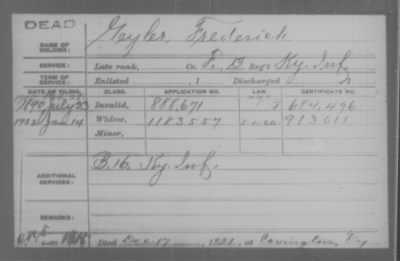 DEAD
Geyler, Frederick
NAME OF SOLDIER:
SERVICE: Late rank, Co. F., B Reg't Ky. Inf.
TERM OF SERVICE: Enlisted , 1 Discharged
DATE OF FILING. CLASS. APPLICATION NO. LAW. CERTIFICATE NO.
1890 July 23 Invalid, 888,671 684,496
1922 Jan 14 Widow, 1183557 913011
Minor,
ADDITIONAL SERVICES: B. 16. Ky. Inf.
REMARKS:
Died Dec 17, 1921, at Covington, Ky